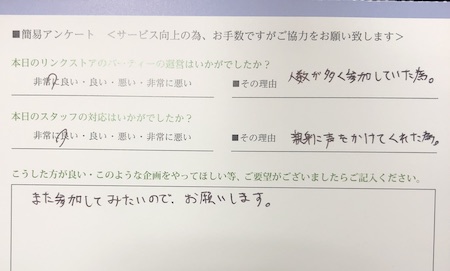 ■簡易アンケート ＜サービス向上の為、お手数ですがご協力をお願い致します＞
本日のリンクストアのパーティーの運営はいかがでしたか？
非常に良い・良い・悪い・非常に悪い ■その理由 人数が多く参加していた為。
本日のスタッフの対応はいかがでしたか？
非常に良い・良い・悪い・非常に悪い ■その理由 親身に声をかけてくれた為。
こうした方が良い・このような企画をやってほしい等、ご要望がございましたらご記入ください。
また参加してみたいので、お願いします。